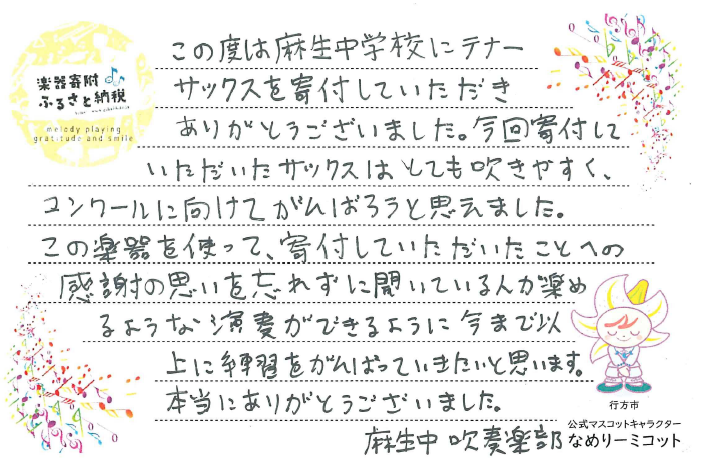 楽器寄附
ふるさと納税
melody playing
gratitude and smile
この度は麻生中学校にテナー
サックスを寄付していただき
ありがとうございました。今回寄付して
いただいたサックスはとても吹きやすく、
コンクールに向けてがんばろうと思えました。
この楽器を使って、寄付していただいたことへの
感謝の思いを忘れずに聞いている人が楽め
るような演奏ができるように今まで以
上に練習をがんばっていきたいと思います。
本当にありがとうございました。
麻生中 吹奏楽部
行方市
公式マスコットキャラクター
なめりーミコット